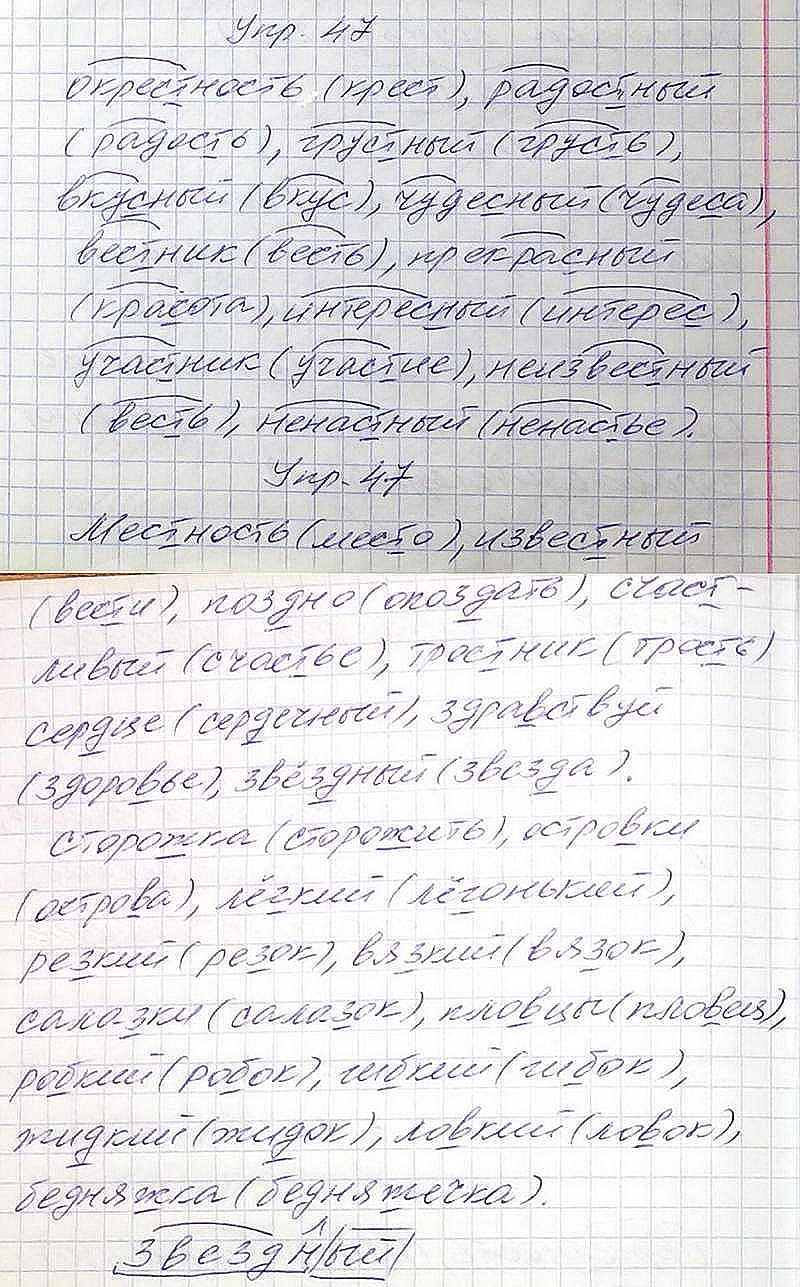 Упр. 47
окрестность (крест), радостный
(радость), грустный (грусть),
вкусный (вкус), чудесный (чудеса),
вестник (весть), прекрасный
(красота), интересный (интерес),
участник (участие), неизвестный
(весть), ненастный (ненастье).
Упр. 47
Местность (место), известный
(вести), поздно (опоздать), счаст-
ливый (счастье), тростник (трость)
сердце (сердечный), здравствуй
(здоровье), звёздный (звезда).
сторожка (сторожить), островки
(острова), лёгкий (лёгонький),
резкий (резок), вязкий (вязок),
салазки (салазок), пловцы (пловец),
робкий (робок), гибкий (гибок),
жидкий (жидок), ловкий (ловок),
бедняжка (бедняжечка).
звездный